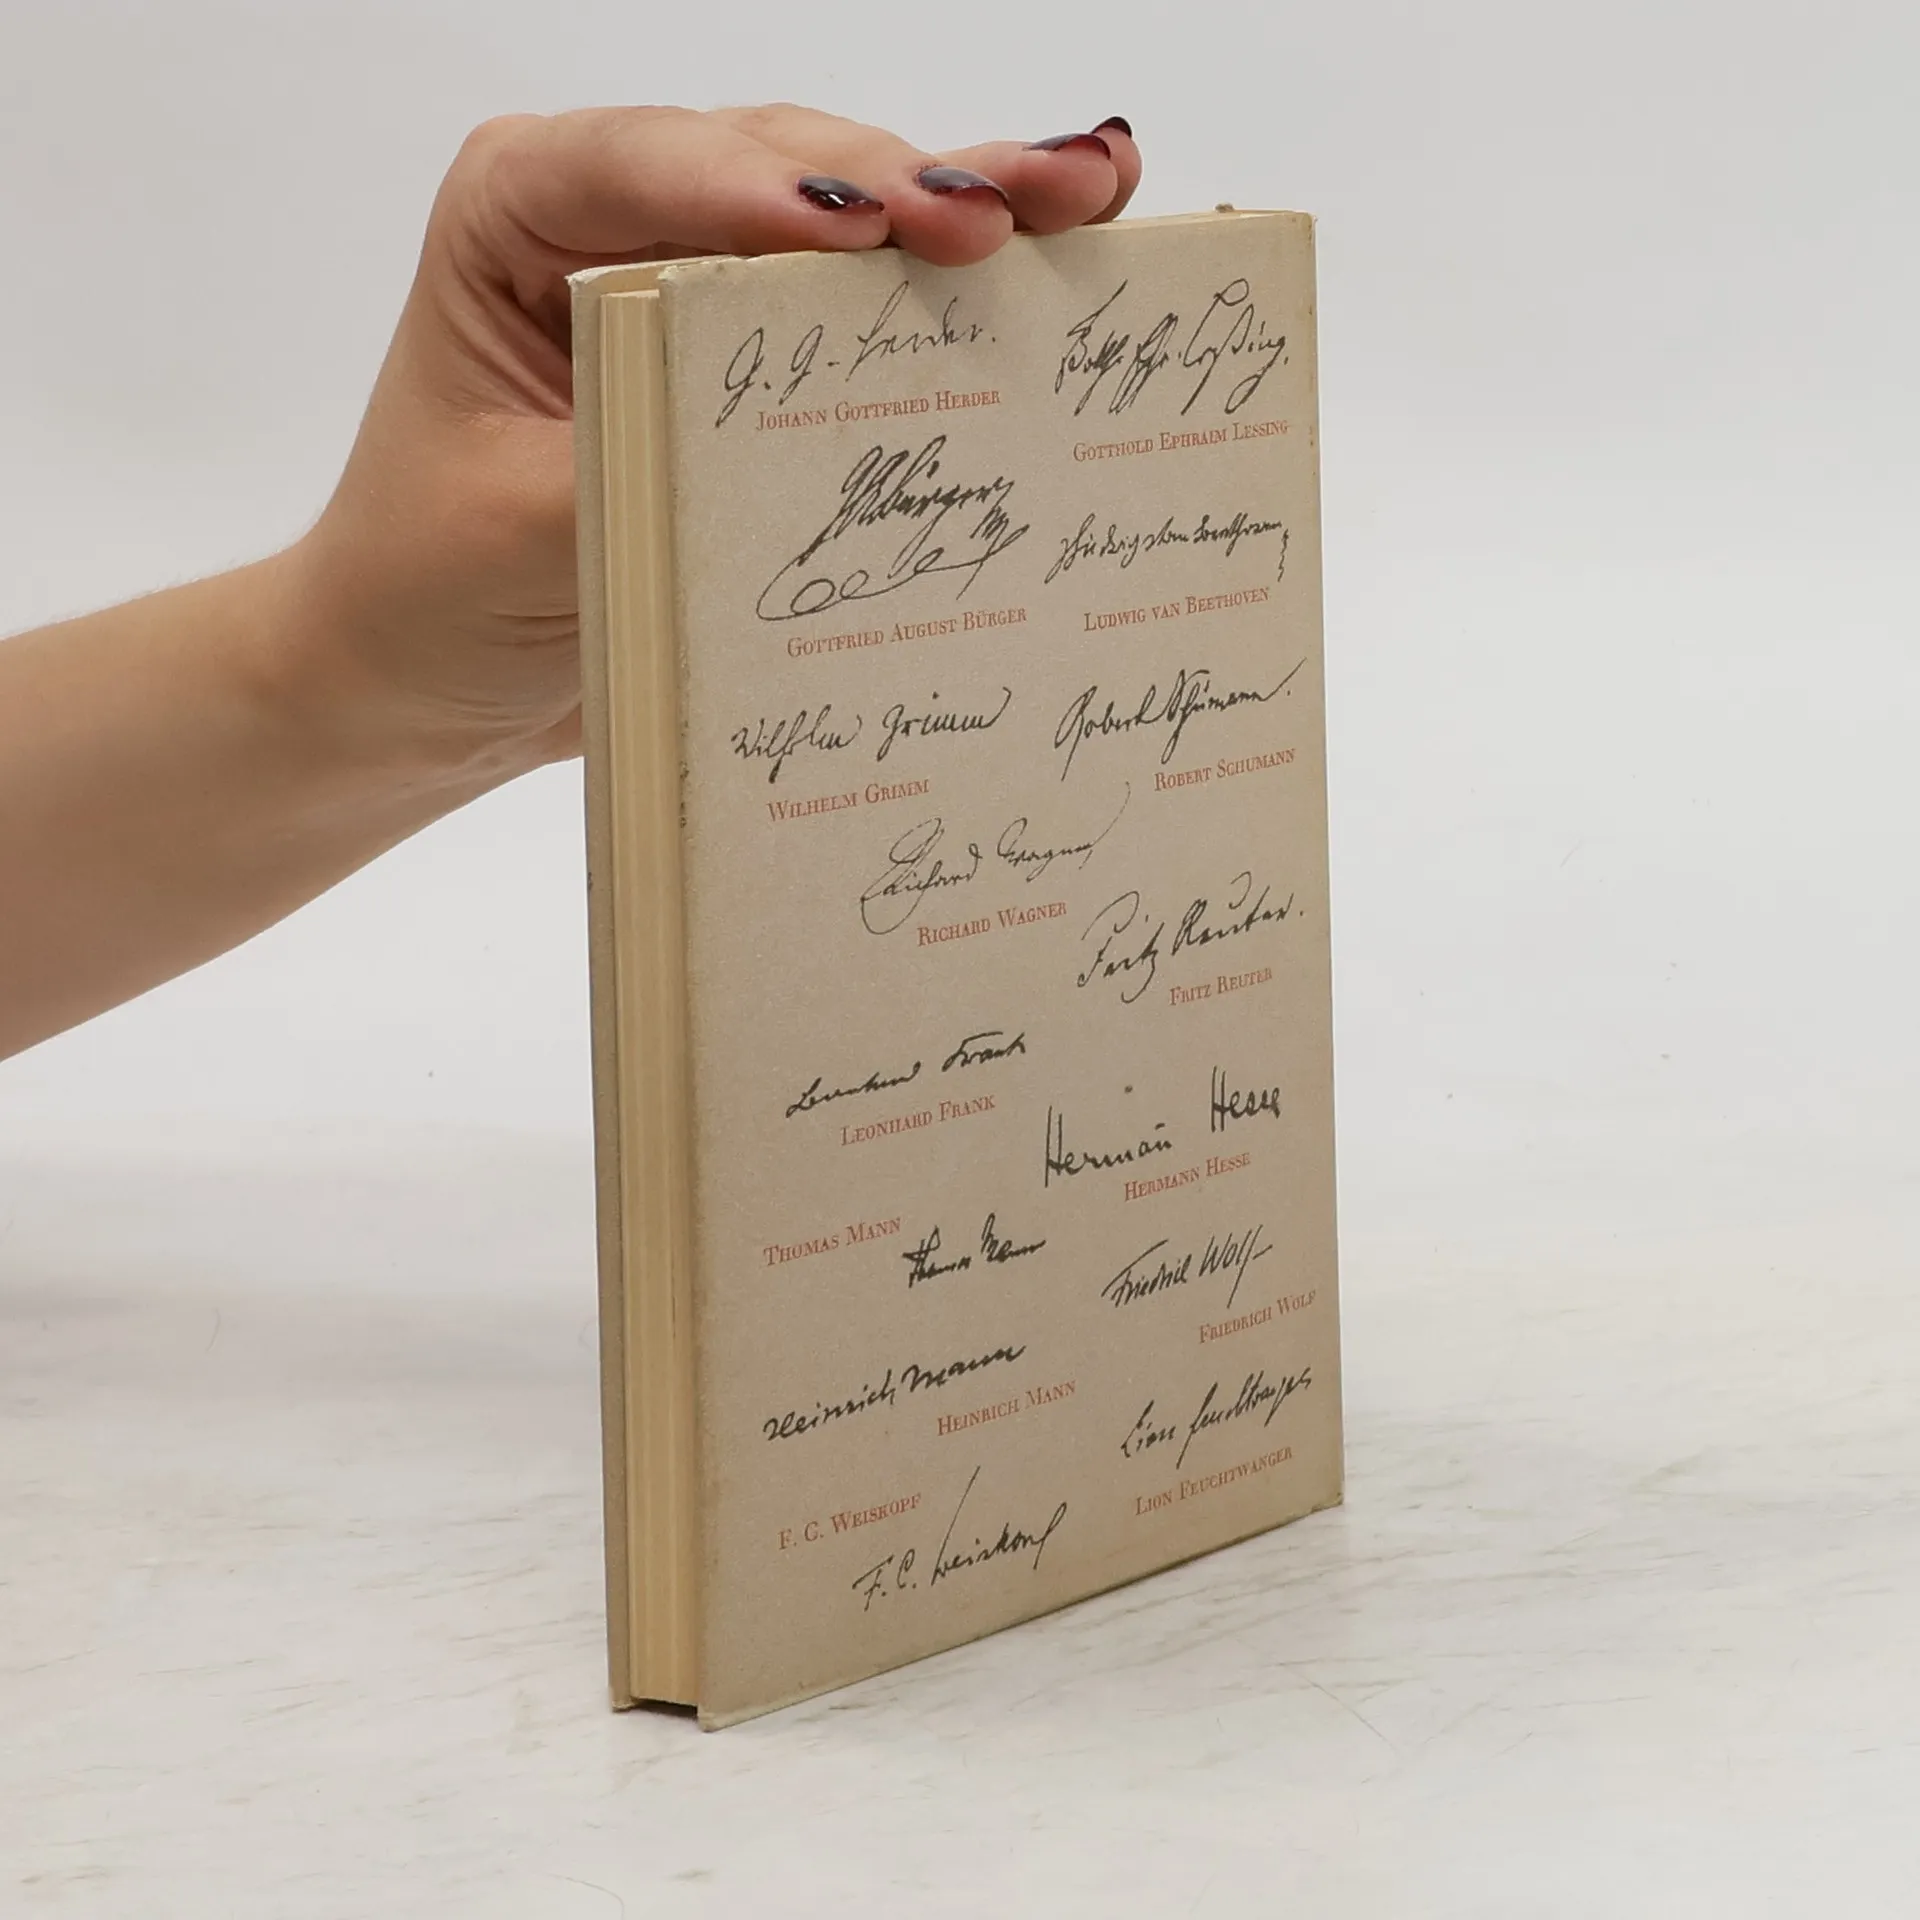 J. G. Herder.
JOHANN GOTTFRIED HERDER
Gotth. Ephr. Lessing.
GOTTHOLD EPHRAIM LESSING
GABürger
GOTTFRIED AUGUST BÜRGER
Ludwig van Beethoven
LUDWIG VAN BEETHOVEN
Wilhelm Grimm
WILHELM GRIMM
Robert Schumann.
ROBERT SCHUMANN
Richard Wagner
RICHARD WAGNER
Fritz Reuter.
FRITZ REUTER
Leonhard Frank
LEONHARD FRANK
Hermann Hesse
HERMANN HESSE
THOMAS MANN
Thomas Mann
Friedrich Wolf
FRIEDRICH WOLF
Heinrich Mann
HEINRICH MANN
Lion Feuchtwanger
LION FEUCHTWANGER
F. C. WEISKOPF
F. C. Weiskopf